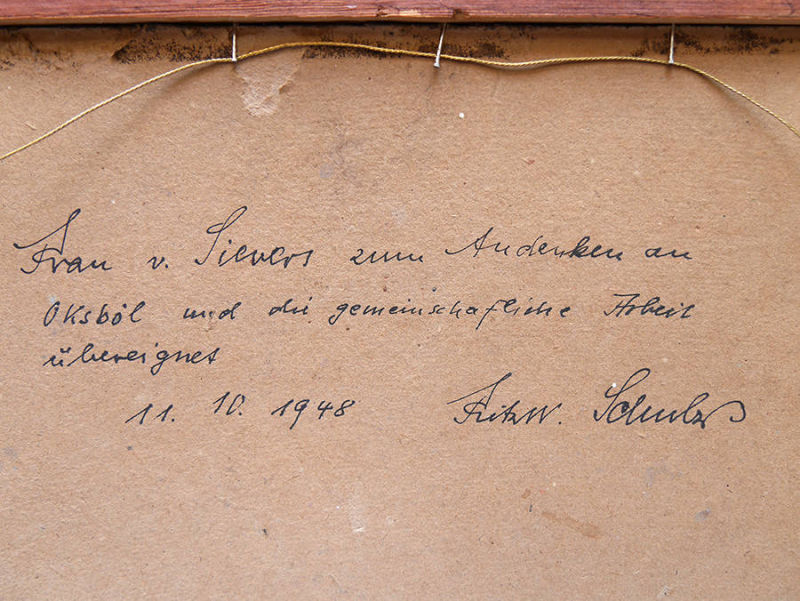 Frau v. Sievers zum Andenken an
Oksböl und die gemeinschafliche Arbeit
übereignet
11. 10. 1948 Fritz W. Schulz